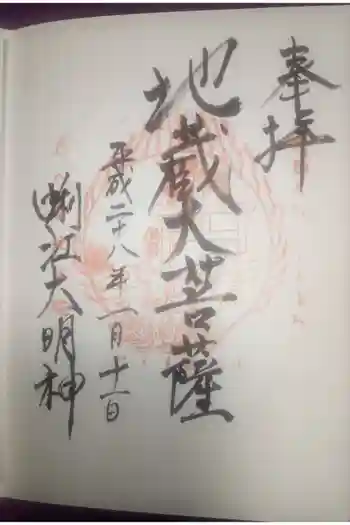 奉拝
地蔵大菩薩
平成二十八年一月十一日
蜊江大明神